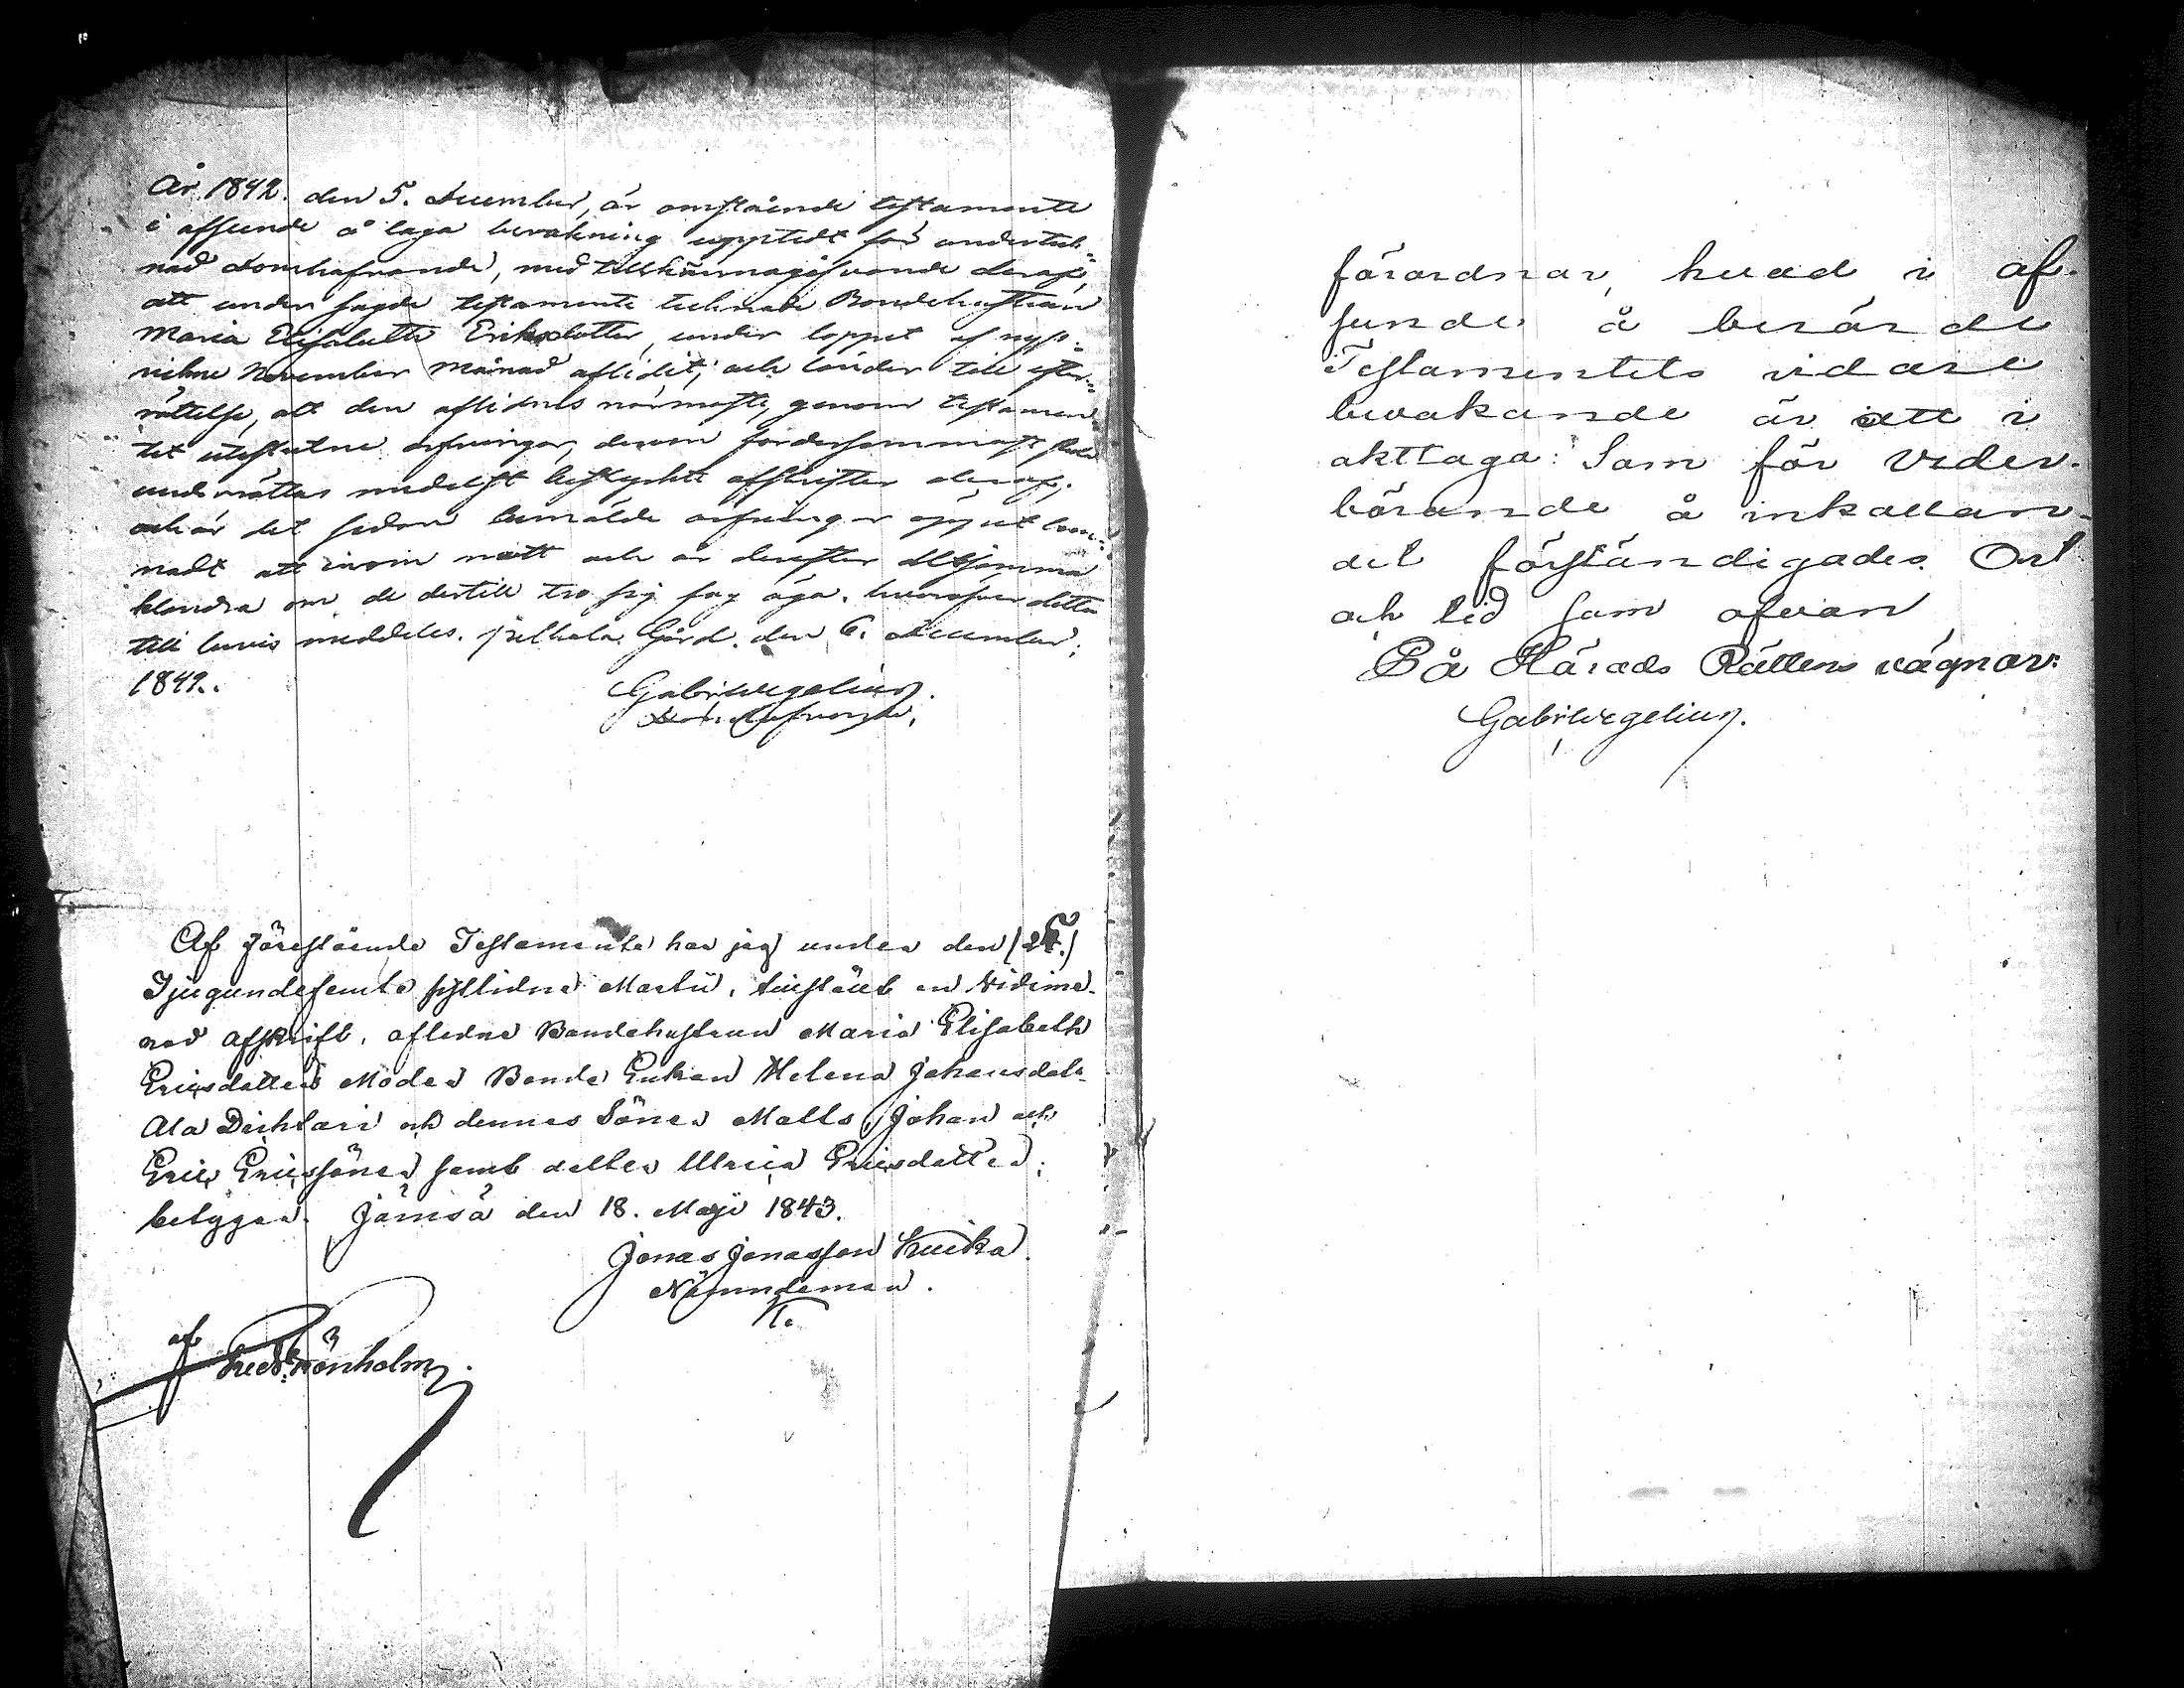 År 1842. den 5. December, är omstående testamente
i afseende å laga bevakning uppvist för underteck-
nad Domhafvande, med tillkännagifvande deraf,
att under sagde testamente tecknade Bondehustrun
Maria Elisabetha Eriksdotter, under loppet af nyst-
vikne November månad aflidit; och länder till efter-
rättelse, att den aflidnes närmaste, genom testamen-
tet uteslutne arfvingar, derom fordersammast skola
underrättas medelst bestyrkte afskrifter deraf;
och är det sedan bemälde arfvingar öppet lem-
nadt att inom natt och år derefter detsamma
klandra om de dertill tro sig fog äga, hvaröfver detta
till bevis meddeles. Gård. den 6. December,
1842.
Gab: Wegelius.
Domhafvande.
Af Förestående Testamente har jag under den (25.)
Tjugundefemte sistlidne Martii, tillstält en Vidime-
rad afskrift, aflidne Bondehustrun Maria Elisabeth
Ericsdotters Moder Bonde Enkan Helena Johansdott.
Ala Deihlari och dennes Söner Matts, Johan och
Eric Ericssöner samt dotter Ulrica Ericsdotter;
betygar. Jämsä den 18. Maji 1843.
Jonas Jonasson Kuika.
Nämndeman.
af
Fred: Grönholm
förordnar, hvad i af-
seende å berörde
Testamentets vidare
bevakande är att i
akttaga: Som för Veder-
börande å inkallan-
det förständigades. Ort
och tid som ofvan
På Härads Rättens vägnar:
Gab: Wegelius.